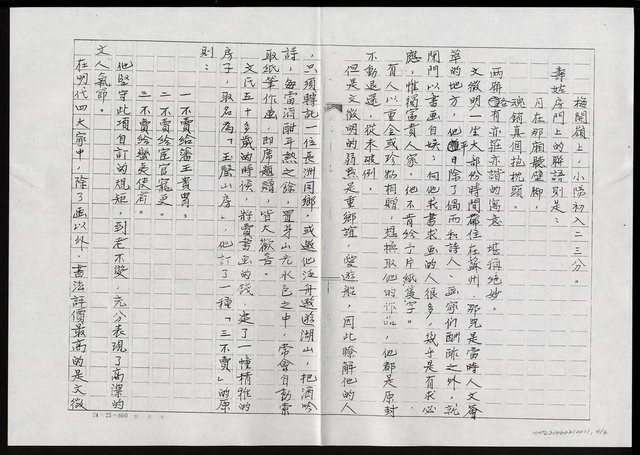 梅開嶺上,小陽初入二三分。
壽姑房門上的聯語則是:
月在那廂聽壁腳,
魂銷真個抱枕頭。
兩聯有亦莊亦諧的寓意,堪稱絕妙。
文徵明一生大部份時間都住在蘇州,那兒是當時人文薈
萃的地方,他平日除了偶而和詩人、畫家們酬酢之外,就
閉門以書畫自娛;向他求書求畫的人很多,幾乎是有求必
應,惟獨富貴人家,他不肯給予片紙隻字。
有人以重金或珍物相贈,想換取他的作品,他都是原封
不動退還,從未破例。
但是文徵明的弱點是重鄉誼,愛遊船,因此瞭解他的人
,只須轉託一位長洲同鄉,或邀他泛舟遨遊湖山,把酒吟
詩,每當酒酣耳熱之餘,置身山光水色之中,常會自動索
取紙筆作畫,即席題贈,皆大歡喜。
文氏五十多歲的時候,將賣書畫的錢,造了一幢精雅的
房子,取名為「玉磬山房」,他訂了一種「三不賣」的原
則:
一不賣給藩王貴胄。
二不賣給宦官寵吏。
三不賣給蠻夷使有。
他堅守此項自訂的規矩,到老不變,充分表現了高深的
文人氣節。
在明代四大家中,除了畫以外,書法評價最高的是文徵
24×25=600